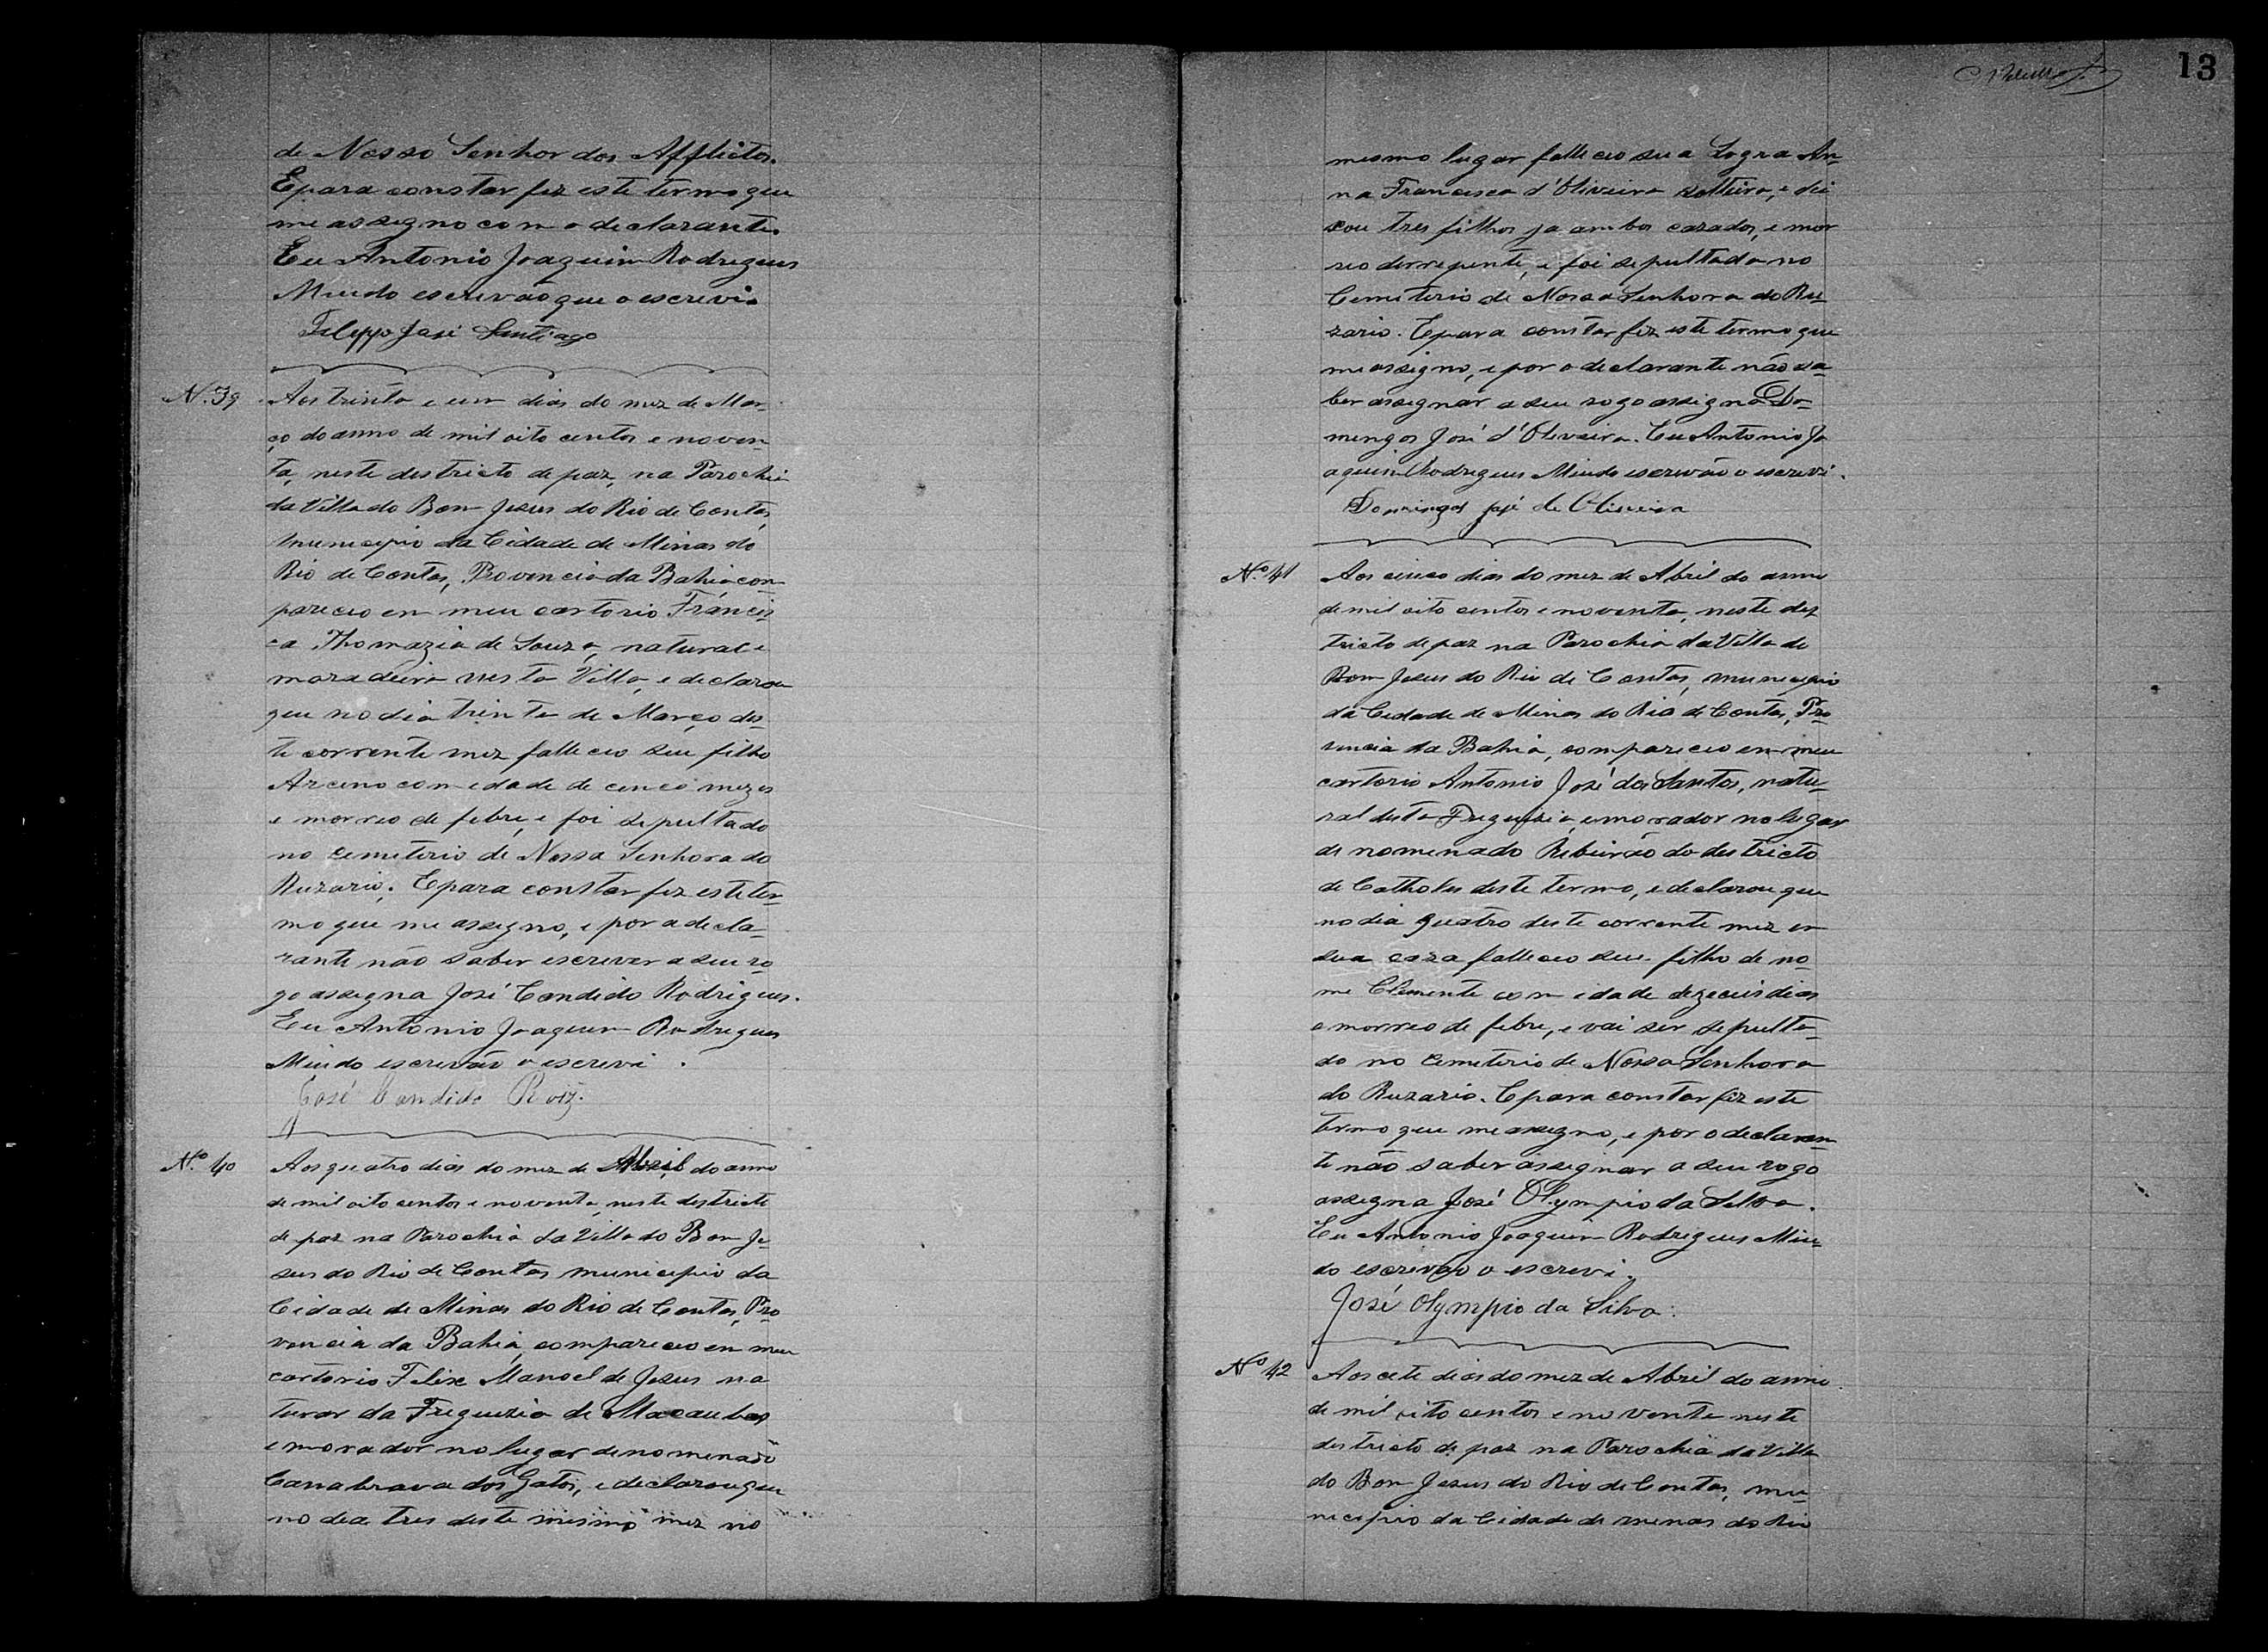 de Nosso Senhor dos Afflictos.
E para constar fiz este termo que
me assegno com o declarante.
Eu Antonio Joaquim Rodregues
Miudo escrevão que o escrevi.
José Santiago
N. 39
Aos trinta e um dias do mez de Mar-
ço do anno de mil oito centos e noven-
ta, neste destricto de paz, na Parochia
da Villa do Bom Jesus do Rio de Contas,
municepio da Cidade de Minas do
Rio de Contas, Provencia da Bahia con-
pareceo em meu cartorio Francis-
ca Thomazia de Souza, natural e
moradeira nesta Villa, e declarou
que no dia trinta de Março des-
te corrente mez falleceo seu filho
Arceno com edade de cenco mezes
e morreo de febre, e foi sepultado
no cemeterio de Nossa Senhora do
Ruzario. E para constar fiz este ter-
mo que me assegno, e por a decla-
rante não saber escrever a seu ro-
go assegna José Candido Rodrigues.
Eu Antonio Joaquim Rodregues
Miudo escrevão o escrevi.
José Candido Roiz.
Nº 40
Aos quatro dias do mez de Abril do anno
de mil oito centos e noventa, neste destricto
de paz na Parochia da Villa do Bom Je-
sus do Rio de Contas municepio da
Cidade de Minas do Rio de Contas, Pro-
vencia da Bahia, compareceo em meu
cartorio Felix Manoel de Jesus na
turar da Freguezia de Macaubas
e morador no lugar denomenado
Canabrava dos Gatos, e declarou que
no dea tres deste mesmo mez no
13
mesmo lugar falleceo sua Sogra An-
na Francisca d'Oliveira solteira, e dei
xou tres filhos ja ambos cazados, e mor
reo derrepente, e foi sepultada no
Cemeterio de Nossa Senhora do Ru-
zario. E para constar fiz este termo que
me assigno, e por o declarante não sa-
ber assegnar a seu rogo assigna Do-
mingos José d'Oliveira. Eu Antonio Jo
aquim Rodregues Miudo escrevão o escrevi.
Domingos José de Oliveira
Nº 41
Aos cinco dias do mez de Abril do anno
de mil oito centos e noventa, neste des-
tricto de paz na Parochia da Villa do
Bom Jesus do Rio de Contas, municepio
da Cedade de Minas do Rio de Contas, Pro-
vencia da Bahia, compareceo em meu
cartorio Antonio José dos Santos, natu-
ral desta Freguezia, e morador no lugar
de nomenado Ribeirão do destricto
de Catholes deste termo, e declarou que
no dia quatro deste corrente mez em
sua caza falleceo seu filho de no-
me Clemente com edade dezeceis dias
e morreo de febre, e vai ser sepulta-
do no Cemeterio de Nossa Senhora
do Ruzario. E para constar fiz este
termo que me assegno, e por o declaran-
te não saber assignar a seu rogo
assegna José Olympio da Selva.
Eu Antonio Joaquim Rodregues Miu-
do escrevão o escrevi.
José Olympio da Silva.
Nº 42
Aos cete dias do mez de Abril do anno
de mil oito centos e noventa neste
destricto de paz na Parochia da Villa
do Bom Jesus do Rio de Contas, mu-
necepio da Cidade de menas do Rio